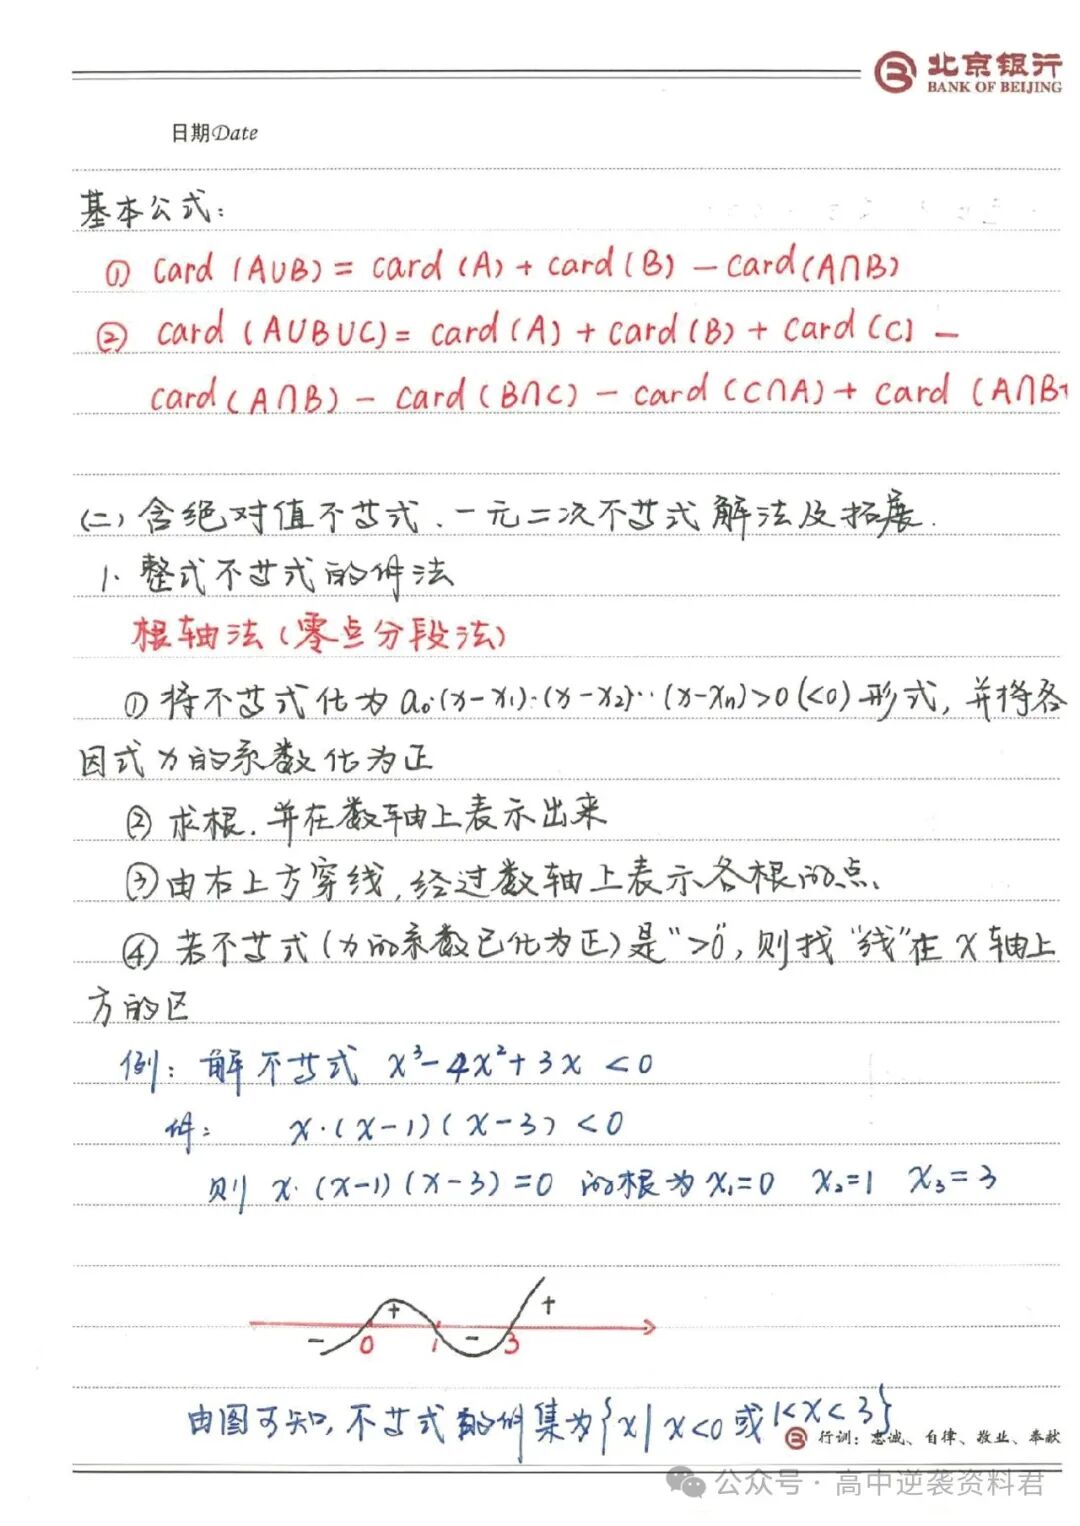 北京银行
BANK OF BEIJING
日期Date
基本公式:
① card (A∪B) = card (A) + card (B) - card (A∩B)
② card (A∪B∪C) = card (A) + card (B) + card (C) -
card (A∩B) - card (B∩C) - card (C∩A) + card (A∩B
(二) 含绝对值不等式、一元二次不等式解法及拓展.
1. 整式不等式的解法
根轴法(零点分段法)
① 将不等式化为 a₀·(x-x₁)·(x-x₂)··(x-xₙ)>0 (<0) 形式, 并将各
因式x的系数化为正
② 求根. 并在数轴上表示出来
③ 由右上方穿线, 经过数轴上表示各根的点.
④ 若不等式(x的系数已化为正)是">0", 则找"线"在x轴上
方的区
例: 解不等式 x³-4x²+3x <0
解: x·(x-1)(x-3) <0
则 x·(x-1)(x-3)=0 的根为 x₁=0 x₂=1 x₃=3
+ +
- 0 1 - 3
由图可知, 不等式的解集为{x|x<0 或 1<x<3}
行训: 忠诚、自律、敬业、奉献
公众号 · 高中逆袭资料君